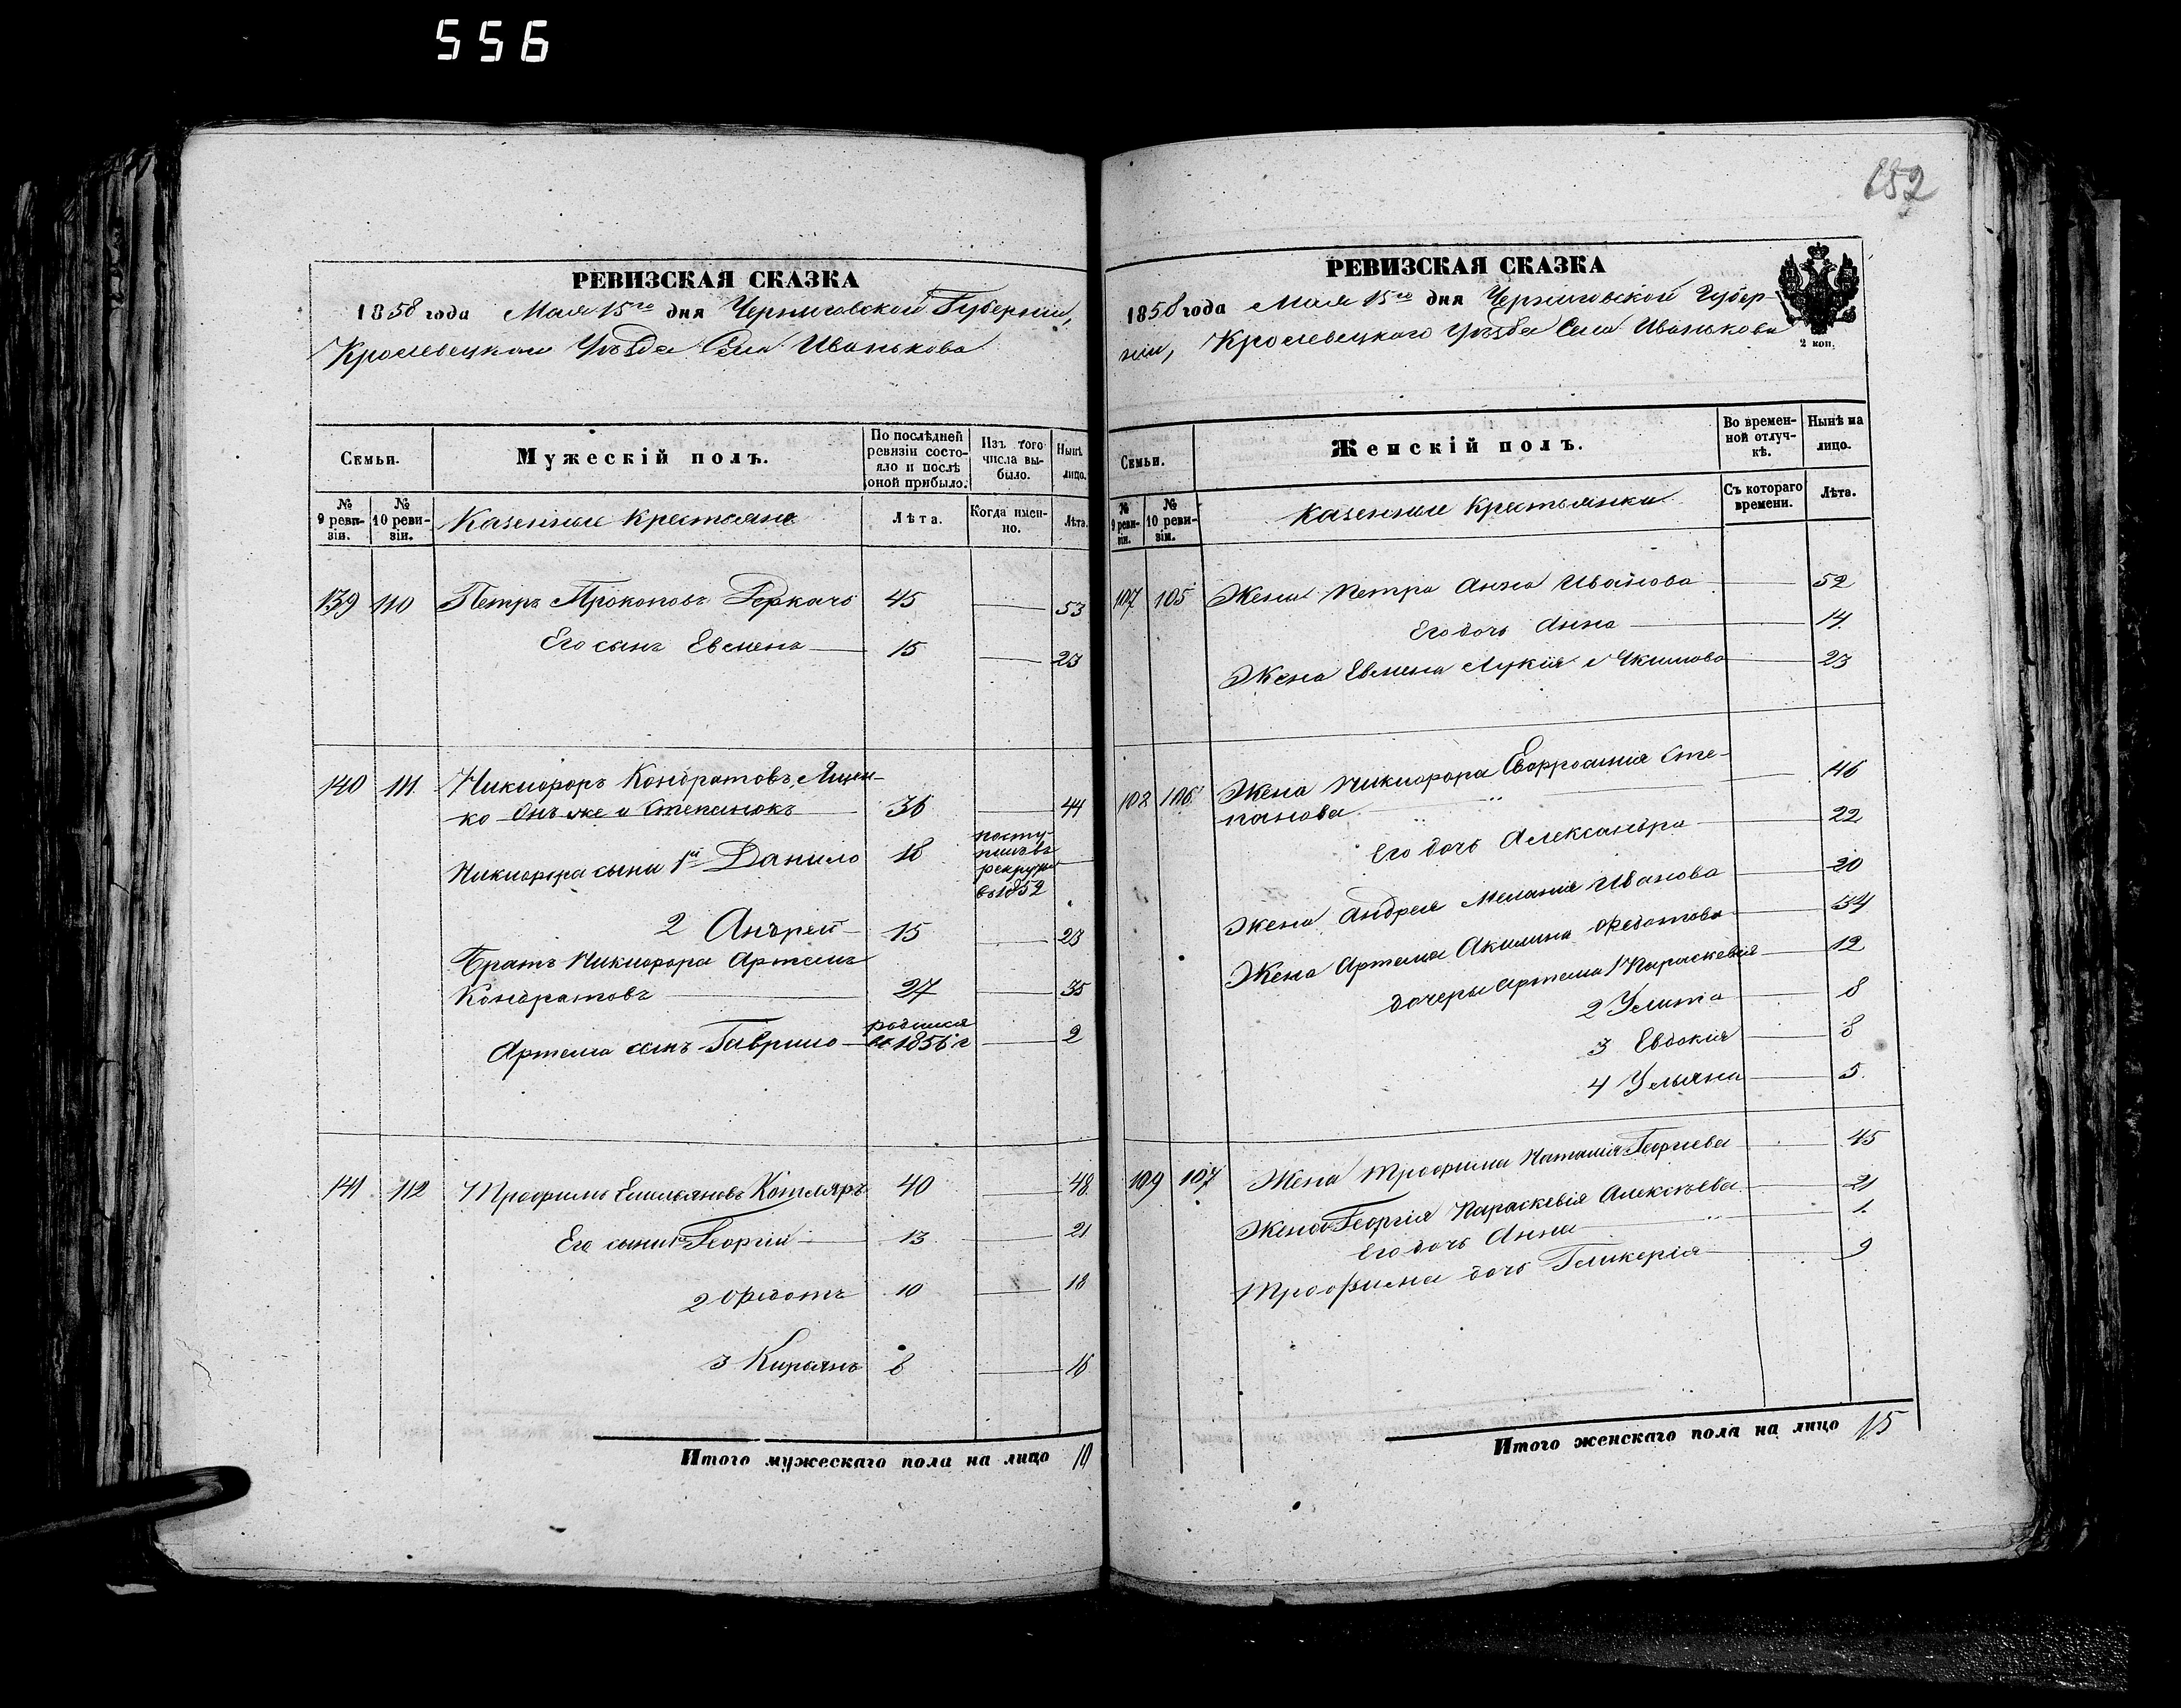 556
РЕВИЗСКАЯ СКАЗКА
1858 года Мая 15го дня Черниговской Губерніи,
Кролевецкаго Уѣзда Села Иванькова
Семьи.
Мужескій полъ.
По послѣдней ревизіи состояло и послѣ оной прибыло.
Изъ того числа выбыло.
Нынѣ лицо.
№ 9 реви-зіи.
№ 10 реви-зіи.
Казенные Крестьяне
Лѣта.
Когда имен-но.
Лѣта.
139 110 Петръ Прокоповъ Деркачъ 45 53
Его сынъ Евмена 15 23
140 111 Никифоръ Кондратовъ Ящен-
ко Онъ же и Степанюкъ 36 44
Никифора сыны 1й Данило 18 посту-
пилъ въ
рекруты
въ 1852
2 Андрей 15 23
Братъ Никифора Артемъ
Кондратовъ 27 35
Артема сынъ Гаврило родился
въ 1856 г 2
141 112 Трофимъ Емельяновъ Котляръ 40 48
Его сыны 1 Георгій 13 21
2 Федотъ 10 18
3 Кирьянъ 8 16
Итого мужескаго пола на лицо 10
152
РЕВИЗСКАЯ СКАЗКА
1858 года Мая 15го дня Черниговской Губер-
ніи, Кролевецкаго Уѣзда Села Иванькова
2 коп.
Семьи.
Женскій полъ.
Во времен-ной отлуч-кѣ.
Нынѣ на лицо.
№ 9 реви-зіи.
№ 10 реви-зіи.
Казенные Крестьянки
Съ котораго времени.
Лѣта.
107 105 Жена Петра Анна Иванова 52
Его дочь Анна 14
Жена Евмена Лукія Якимова 23
108 106 Жена Никифора Евфросинія Сте-
панова 46
Его дочь Александра 22
Жена Андрея Меланія Иванова 20
Жена Артема Акилина Федотова 34
дочеры Артема 1 Параскевія 12
2 Улита 8
3 Евдокія 8
4 Ульяна 5
109 107 Жена Трофима Наталія Георгіева 45
Жена Георгія Параскевія Алексѣева 21
Его дочь Анна 1
Трофима дочь Гликерія 9
Итого женскаго пола на лицо 15